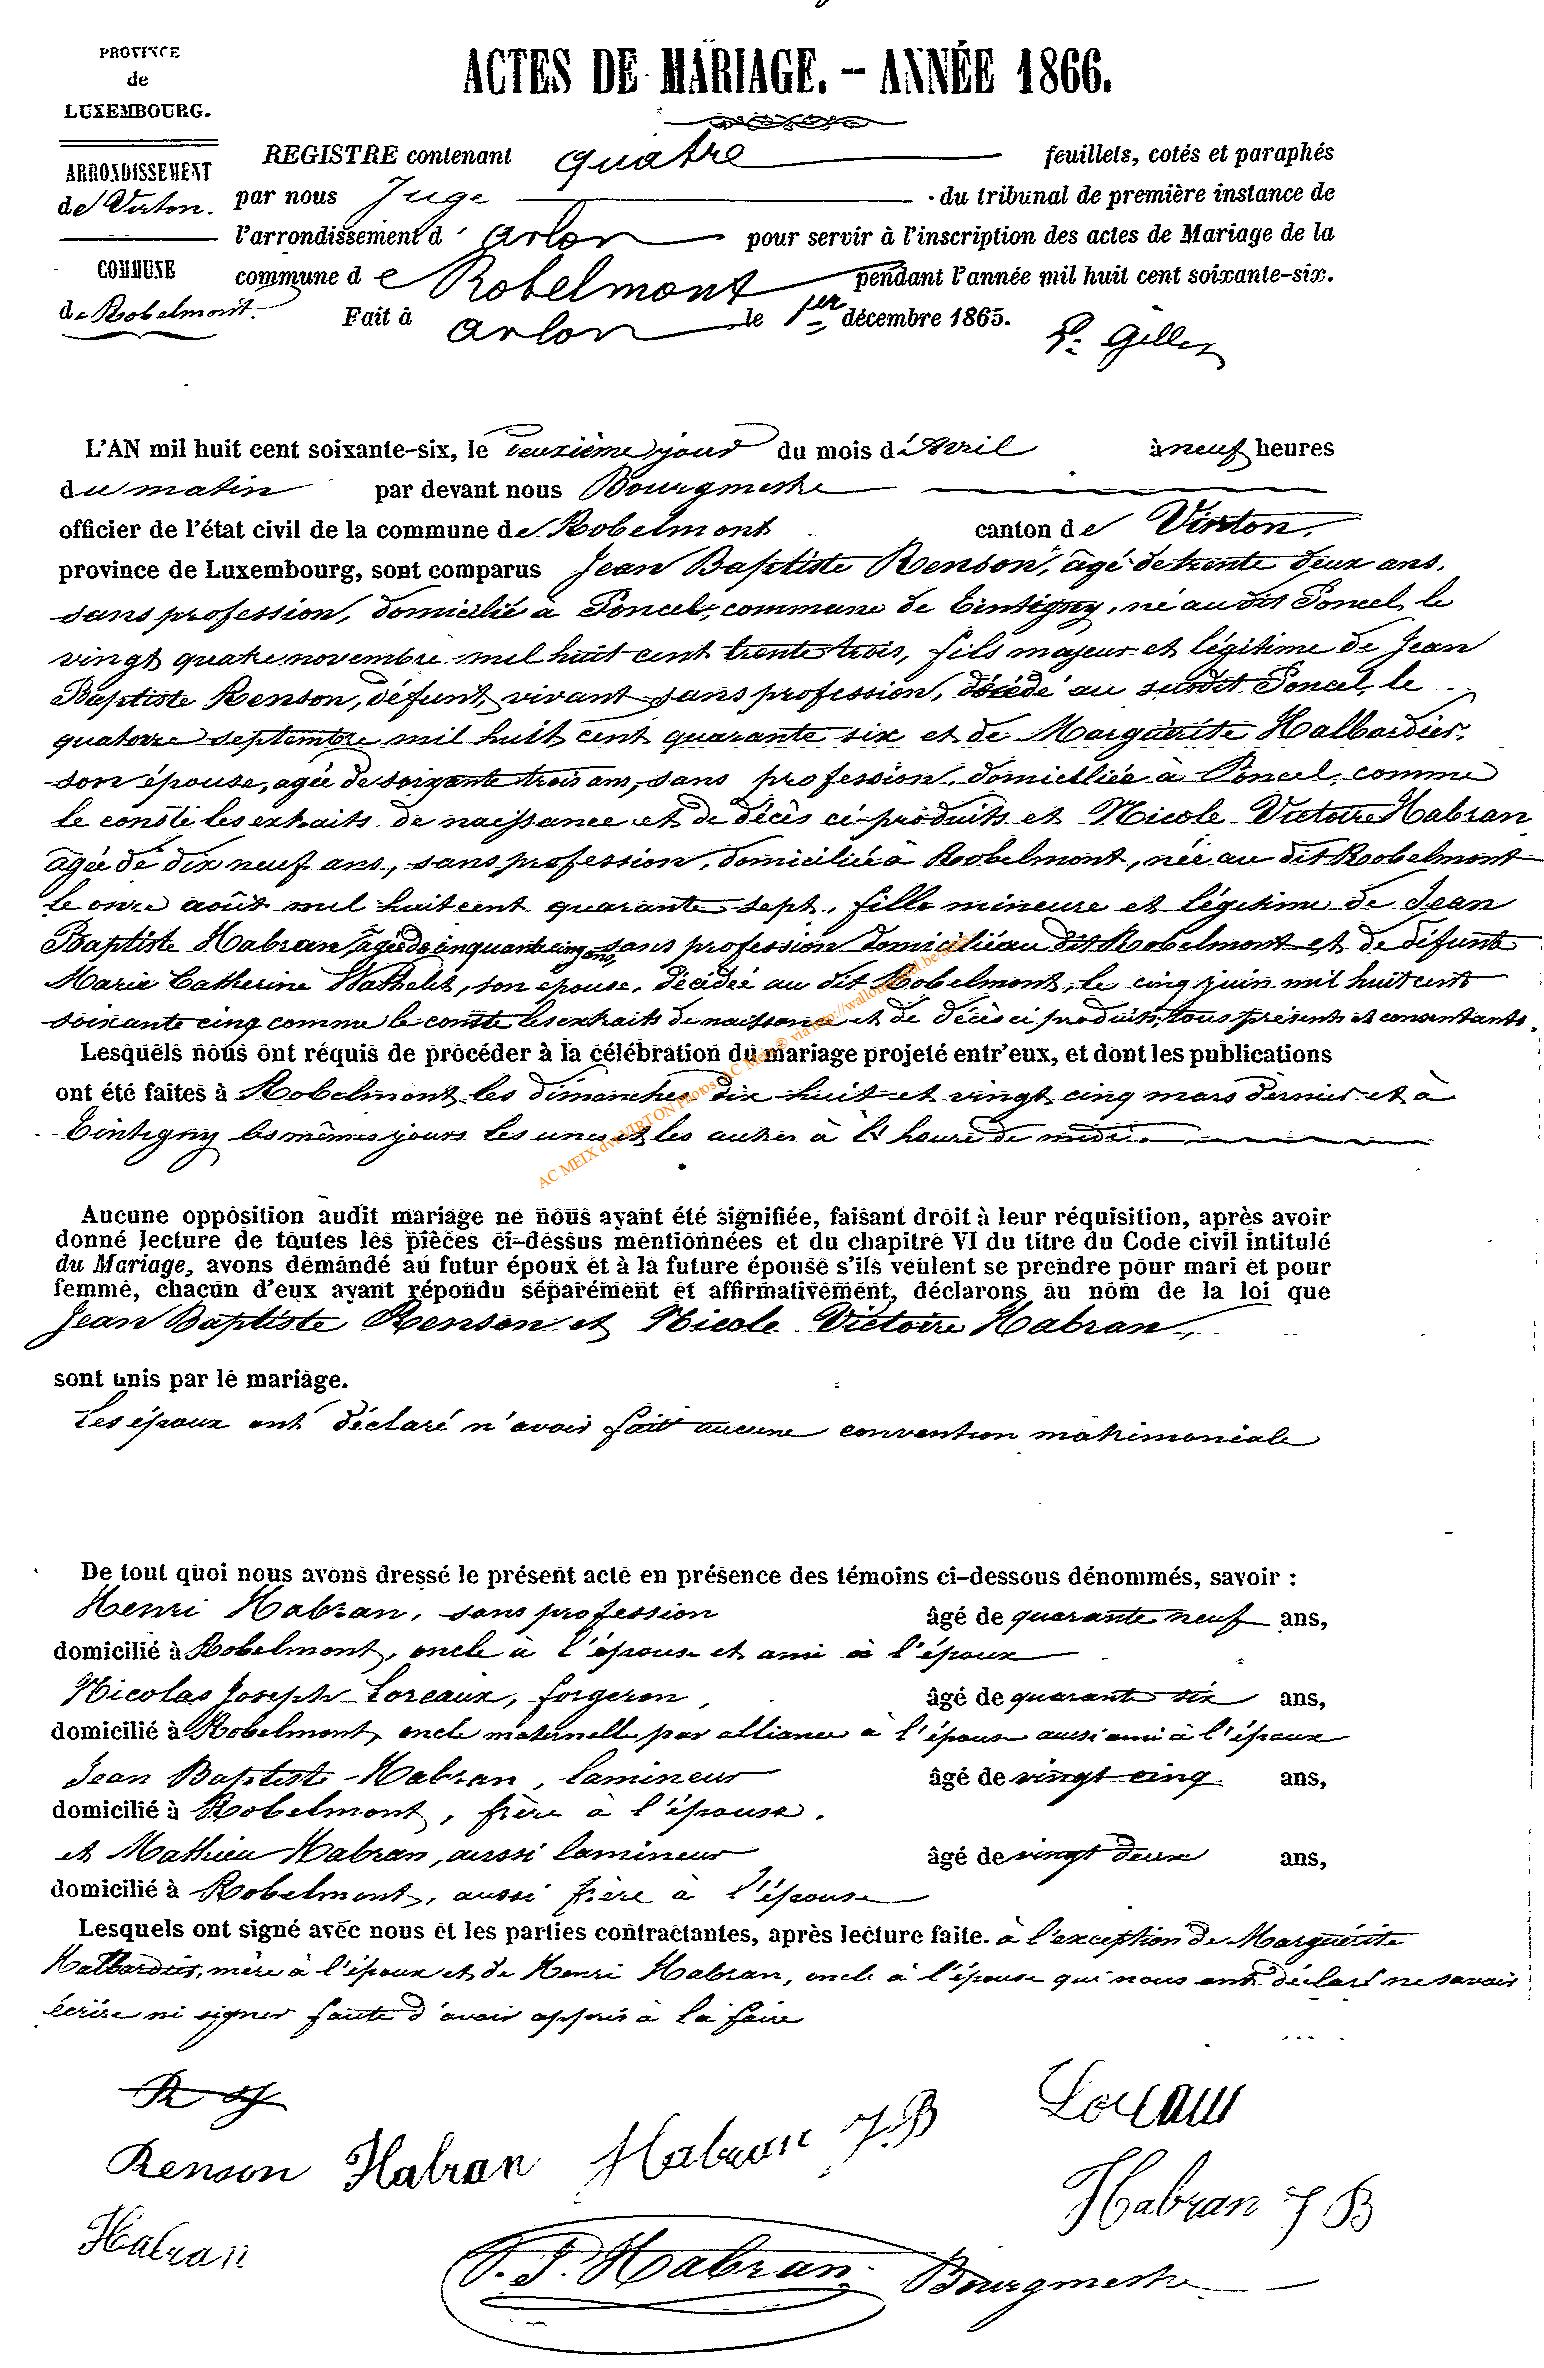 PROVINCE
de
LUXEMBOURG.
ARRONDISSEMENT
de Virton.
COMMUNE
de Robelmont.
ACTES DE MARIAGE. – ANNÉE 1866.
REGISTRE contenant quatre feuillets, cotés et paraphés
par nous Juge du tribunal de première instance de
l'arrondissement d'Arlon pour servir à l'inscription des actes de Mariage de la
commune de Robelmont pendant l'année mil huit cent soixante-six.
Fait à Arlon le 1er décembre 1865.
P. Gilles
L'AN mil huit cent soixante-six, le deuxième jour du mois d'Avril à neuf heures
du matin par devant nous Bourgmestre
officier de l'état civil de la commune de Robelmont canton de Virton,
province de Luxembourg, sont comparus Jean Baptiste Renson, âgé de trente deux ans,
sans profession, domicilié à Poncel, commune de Tintigny, né au dit Poncel, le
vingt quatre novembre mil huit cent trente trois, fils majeur et légitime de Jean
Baptiste Renson, défunt, vivant sans profession, décédé au susdit Poncel, le
quatorze septembre mil huit cent quarante six et de Marguérite Halbardier,
son épouse, agée de soixante trois ans, sans profession, domicilliée à Poncel, comme
le conste les extraits de naissance et de décès ci-produits et Nicole Victoire Habran
agée de dix neuf ans, sans profession, domiciliée à Robelmont, née au dit Robelmont
le onze août mil huit cent quarante sept, fille mineure et légitime de Jean
Baptiste Habran, âgé de cinquante cinq ans, sans profession domicilié au dit Robelmont et de défunte
Marie Catherine Wathelet, son épouse, décédée au dit Robelmont, le cinq juin mil huit cent
soixante cinq comme le conste les extraits de naissance et de décès ci produits, tous présents et consentants.
Lesquels nous ont réquis de procéder à la célébration du mariage projeté entr'eux, et dont les publications
ont été faites à Robelmont les dimanches dix huit et vingt cinq mars dernier et à
Tintigny les mêmes jours les unes et les autres à l'heure de midi.
AC MEIX dvt VIRTON Photos AC Meix ® via http://wallonica.nl.be
Aucune opposition audit mariage ne nous ayant été signifiée, faisant droit à leur réquisition, après avoir
donné lecture de toutes les pièces ci-dessus mentionnées et du chapitre VI du titre du Code civil intitulé
du Mariage, avons demandé au futur époux et à la future épouse s'ils veulent se prendre pour mari et pour
femme, chacun d'eux ayant répondu séparément et affirmativement, déclarons au nom de la loi que
Jean Baptiste Renson et Nicole Victoire Habran,
sont unis par le mariage.
Les époux ont déclaré n'avoir fait aucune convention matrimoniale
De tout quoi nous avons dressé le présent acte en présence des témoins ci-dessous dénommés, savoir :
Henri Habran, sans profession âgé de quarante neuf ans,
domicilié à Robelmont, oncle à l'épouse et ami à l'époux
Nicolas Joseph Loreaux, forgeron, âgé de quarante six ans,
domicilié à Robelmont, oncle maternelle par alliance à l'épouse aussi ami à l'époux
Jean Baptiste Habran, lamineur âgé de vingt cinq ans,
domicilié à Robelmont, frère à l'épouse.
et Mathieu Habran, aussi lamineur âgé de vingt deux ans,
domicilié à Robelmont, aussi frère à l'épouse
Lesquels ont signé avec nous et les parties contractantes, après lecture faite. à l'exception de Marguérite
Halbardier, mère à l'époux et de Henri Habran, oncle à l'épouse qui nous ont déclaré ne savoir
écrire ni signer faute d'avoir appris à la faire
Renson Habran Habran J.B Loreaux
Habran Habran J B
J. J. Habran. Bourgmestre